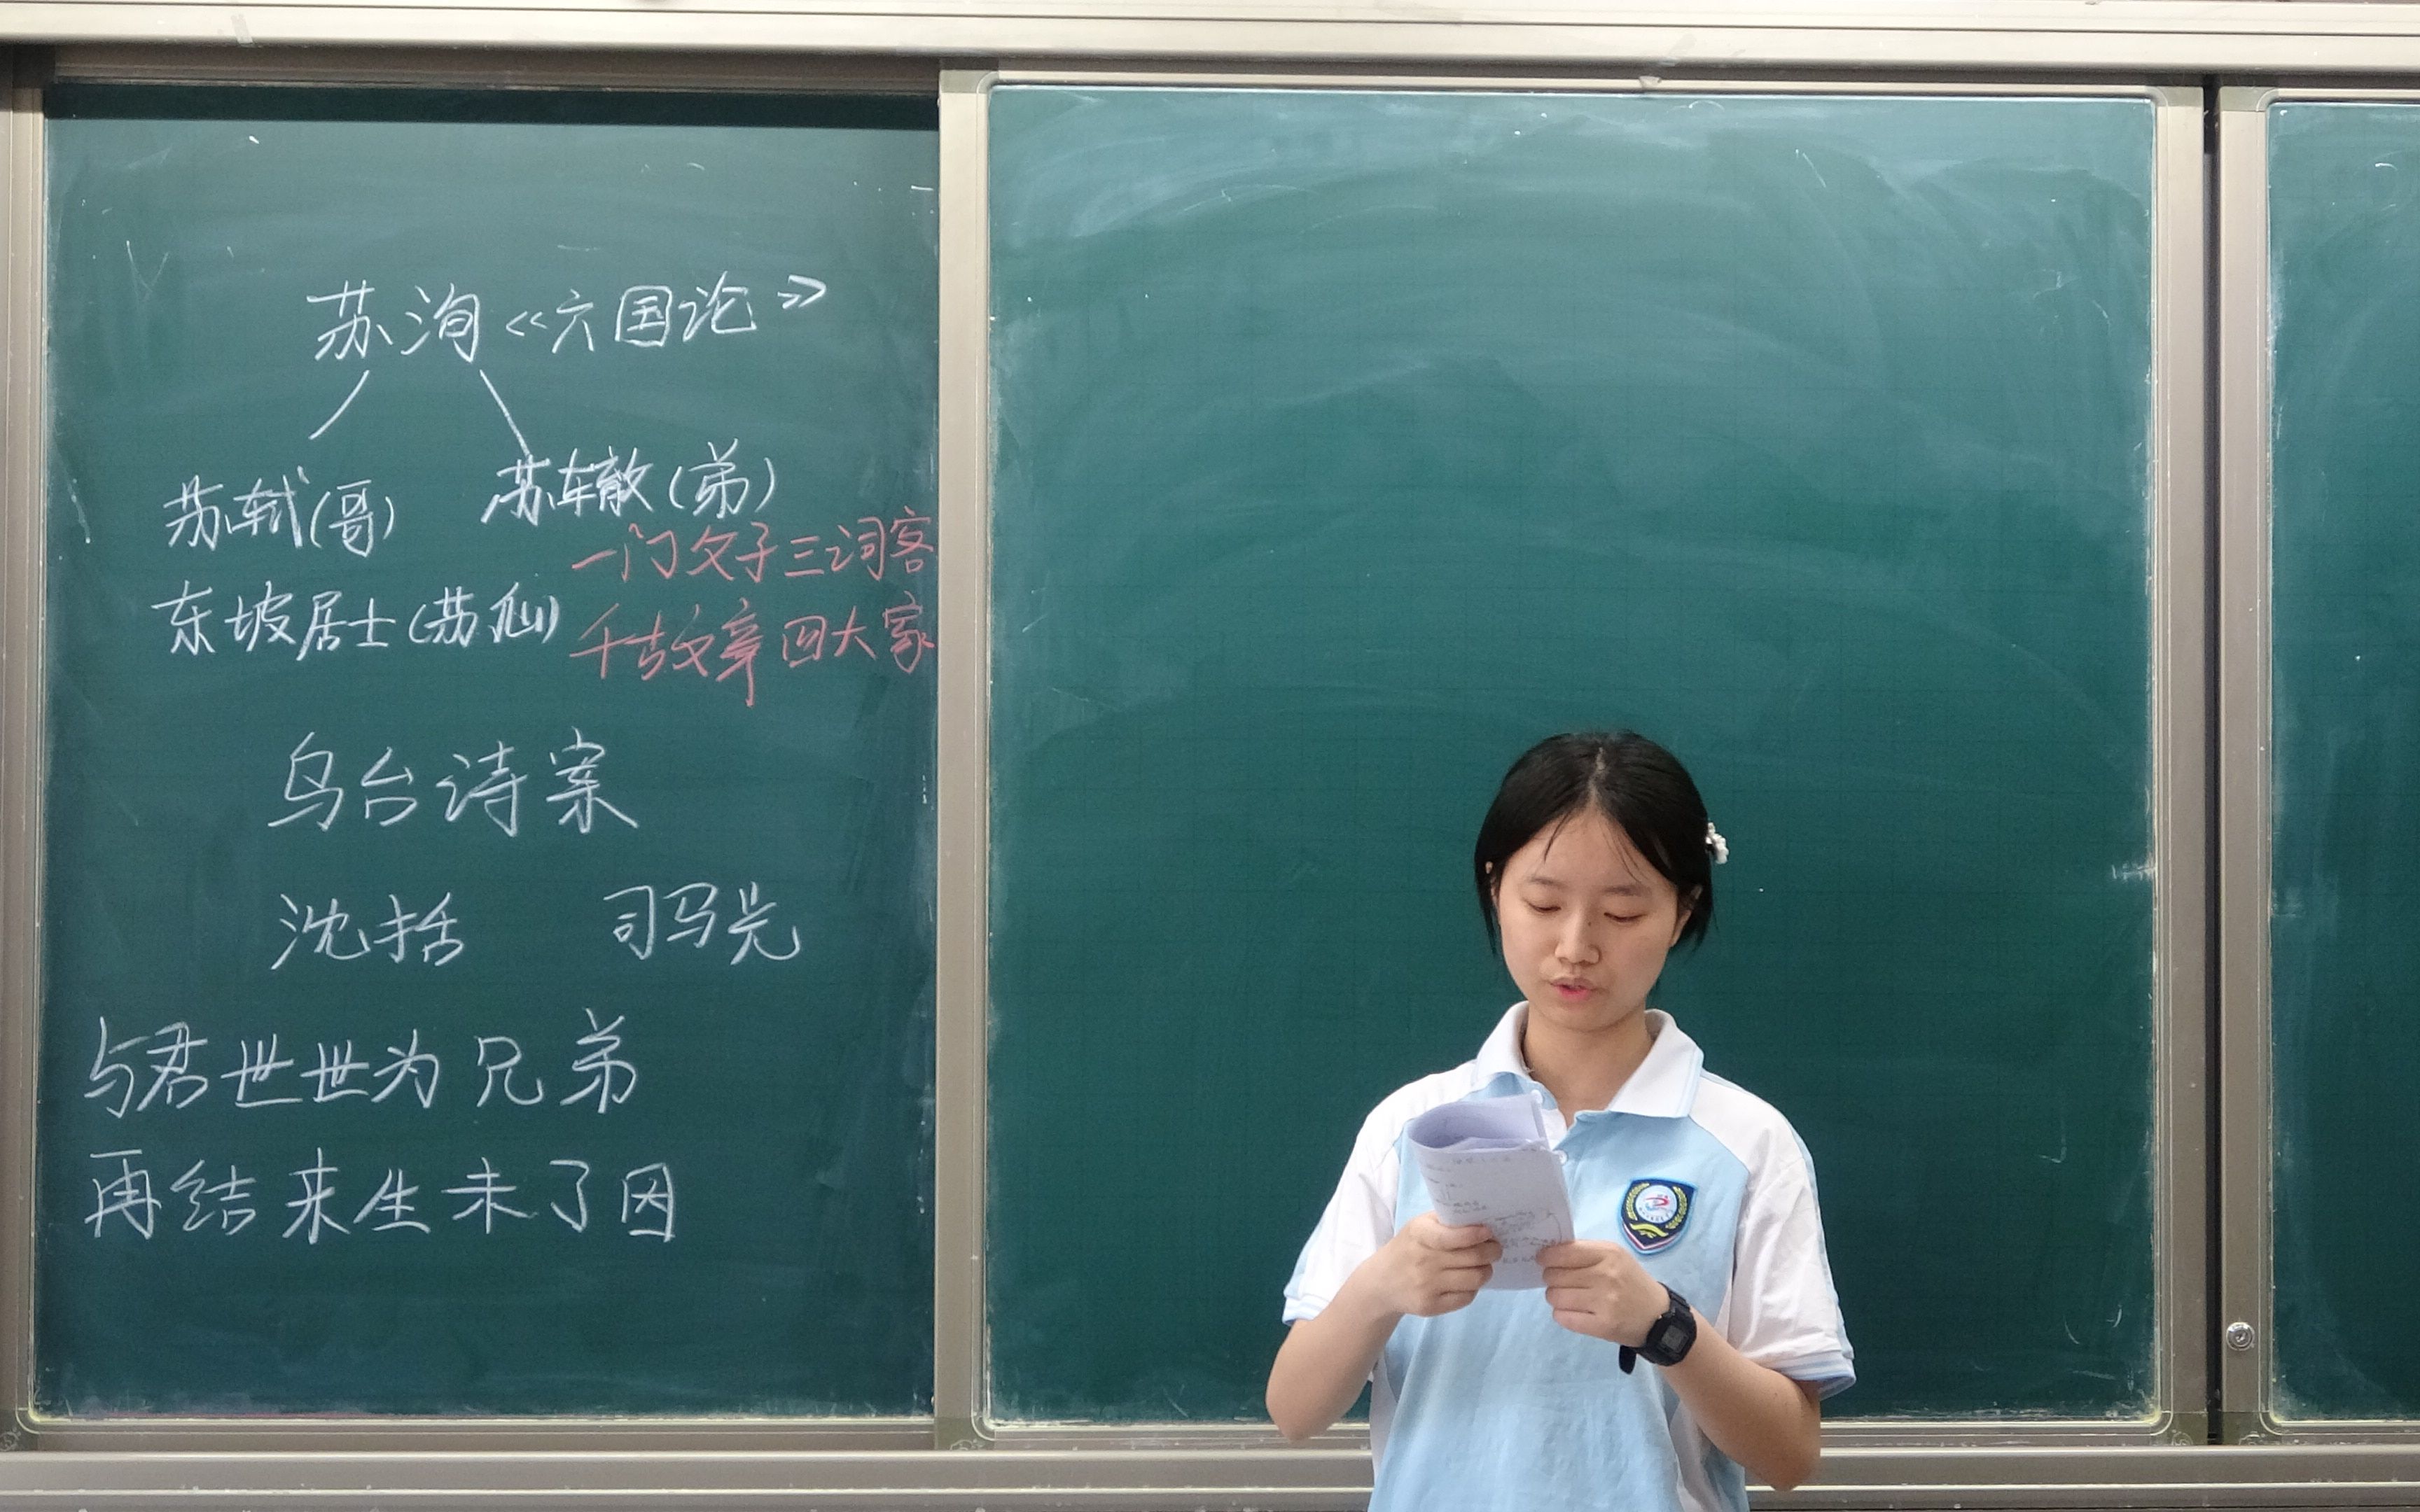 苏洵《六国论》
苏轼(哥) 苏辙(弟)
东坡居士(苏仙)
一门父子三词客
千古文章四大家
乌台诗案
沈括 司马光
与君世世为兄弟
再结来生未了因